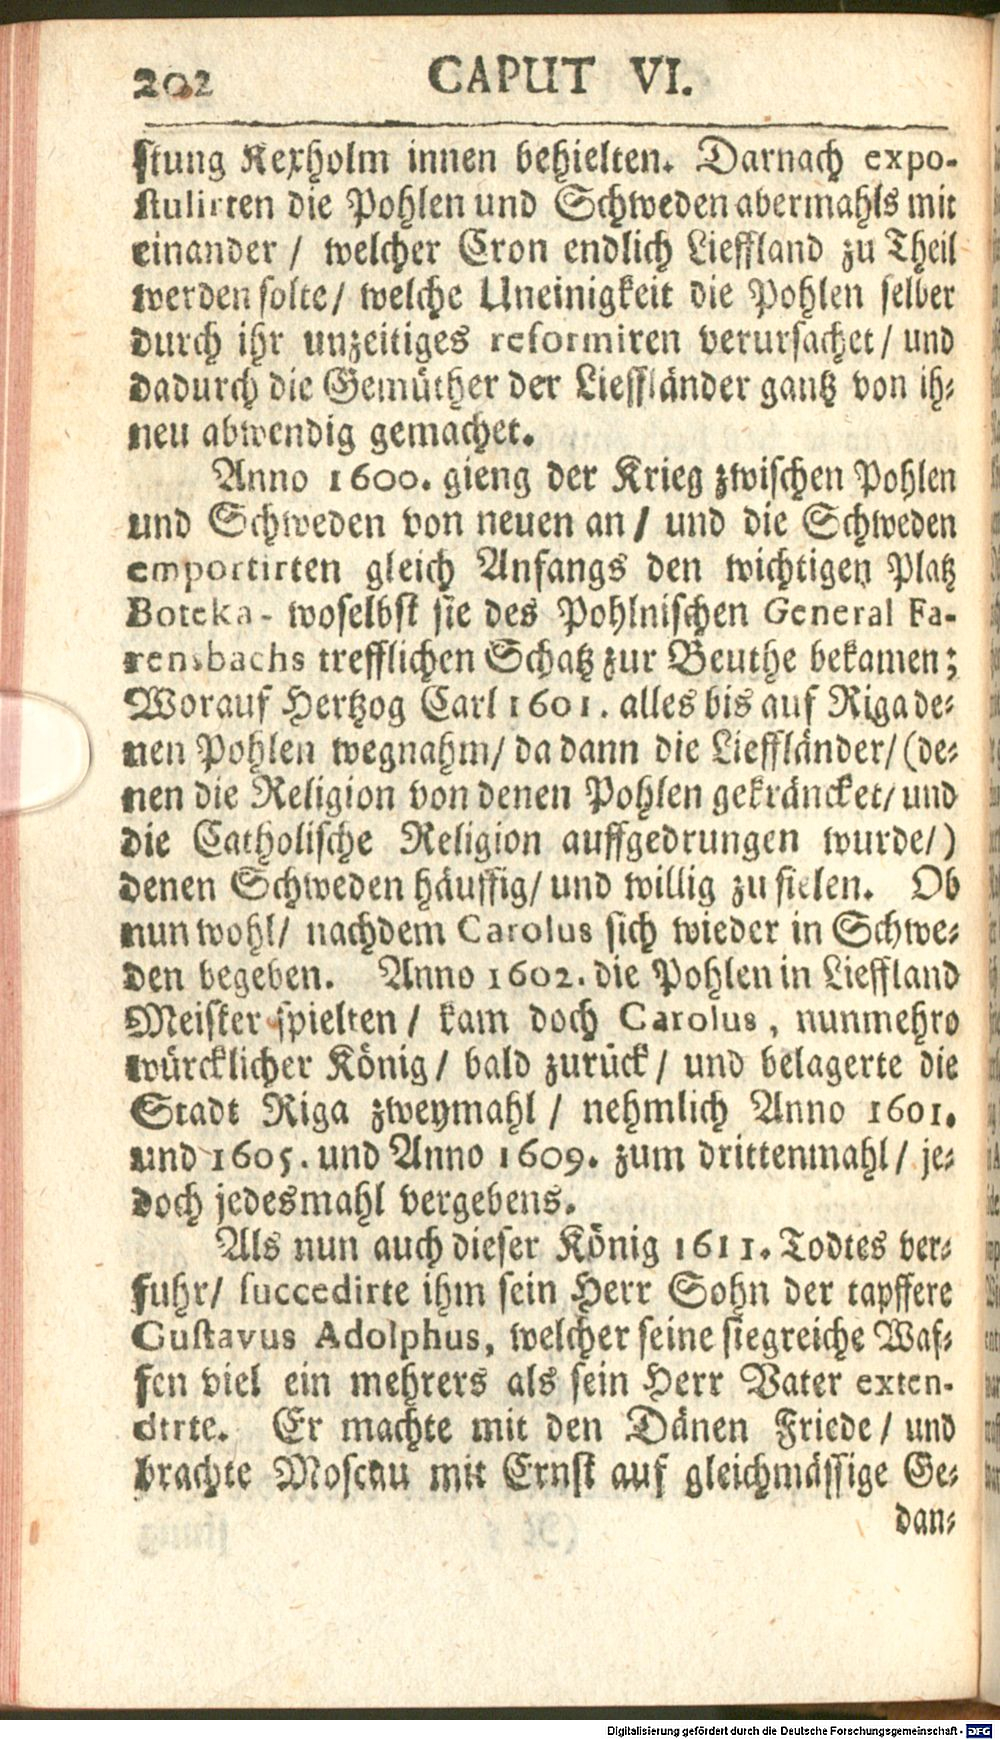 202 CAPUT VI.
stung Kexholm innen behielten. Darnach expo-
stulirten die Pohlen und Schweden abermahls mit
einander / welcher Cron endlich Lieffland zu Theil
werden solte / welche Uneinigkeit die Pohlen selber
durch ihr unzeitiges reformiren verursachet / und
dadurch die Gemüther der Lieffländer gantz von ih-
neu abwendig gemachet.
Anno 1600. gieng der Krieg zwischen Pohlen
und Schweden von neuen an / und die Schweden
emportirten gleich Anfangs den wichtigen Platz
Boteka- woselbst sie des Pohlnischen General Fa-
rensbachs trefflichen Schatz zur Beuthe bekamen;
Worauf Hertzog Carl 1601. alles bis auf Riga de-
nen Pohlen wegnahm / da dann die Lieffländer / (de-
nen die Religion von denen Pohlen gekräncket / und
die Catholische Religion auffgedrungen wurde /)
denen Schweden häuffig / und willig zu fielen. Ob
nun wohl / nachdem Carolus sich wieder in Schwe-
den begeben. Anno 1602. die Pohlen in Lieffland
Meister spielten / kam doch Carolus, nunmehro
würcklicher König / bald zurück / und belagerte die
Stadt Riga zweymahl / nehmlich Anno 1601.
und 1605. und Anno 1609. zum drittenmahl / je-
doch jedesmahl vergebens.
Als nun auch dieser König 1611. Todtes ver-
fuhr / succedirte ihm sein Herr Sohn der tapffere
Gustavus Adolphus, welcher seine siegreiche Waf-
fen viel ein mehrers als sein Herr Vater exten-
dirte. Er machte mit den Dänen Friede / und
brachte Moscau mit Ernst auf gleichmässige Ge-
dan-
Digitalisierung gefördert durch die Deutsche Forschungsgemeinschaft - DFG